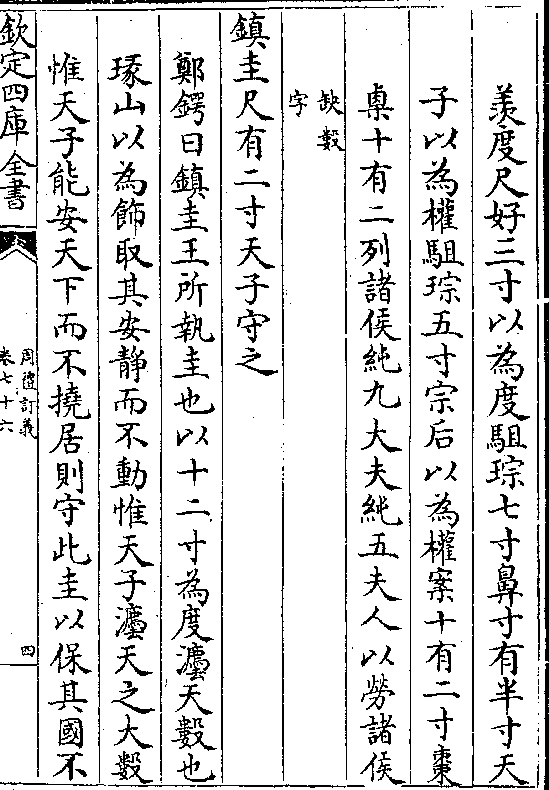 羨度尺好三寸以為度駔琮七寸鼻寸有半寸天
子以為權駔琮五寸宗后以為權案十有二寸棗
㮚十有二列諸侯純九大夫純五夫人以勞諸侯
缺數
字
鎮圭尺有二寸天子守之
鄭鍔曰鎮圭王所執圭也以十二寸為度灋天數也
琢山以為飾取其安靜而不動惟天子灋天之大數
惟天子能安天下而不撓居則守此圭以保其國不
欽定四庫全書
周禮訂義
卷七十六
四